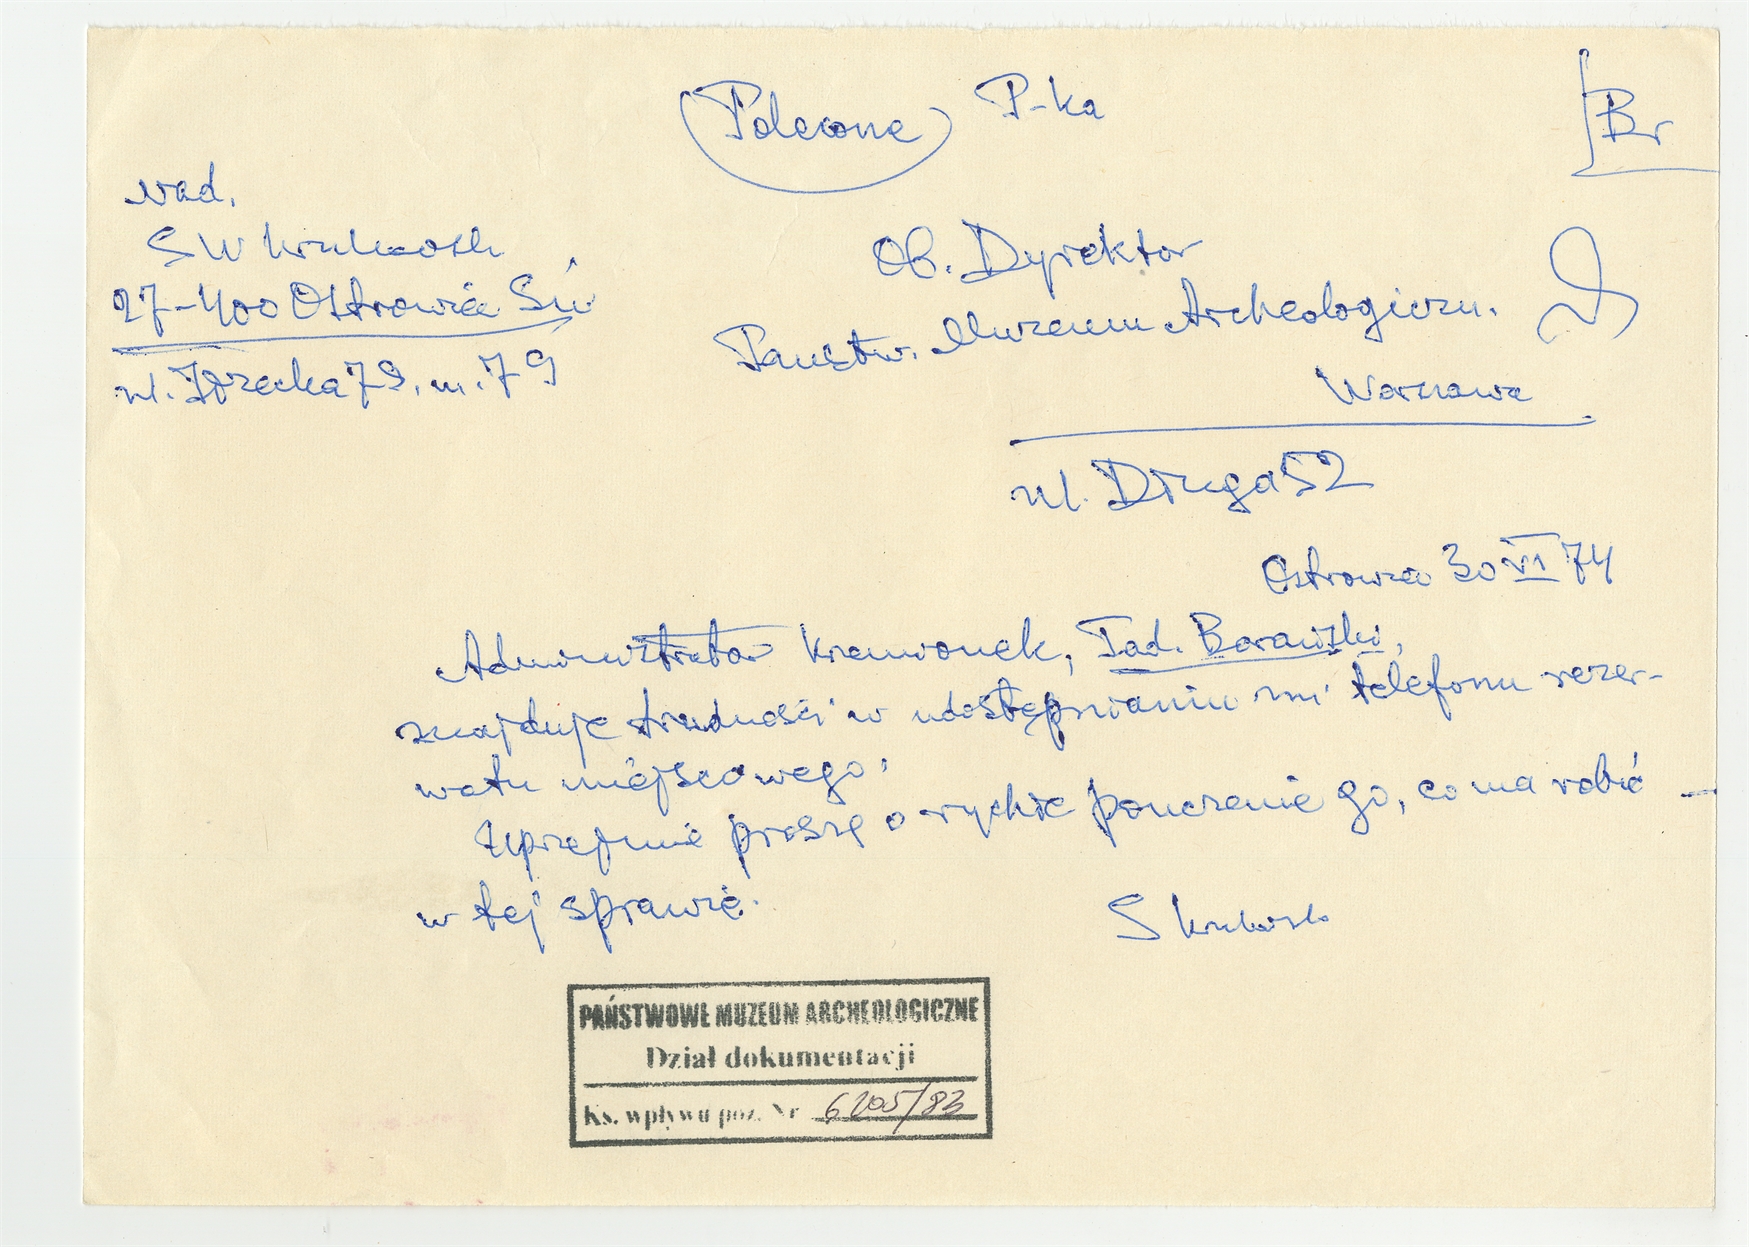 Polecone P-ka
Br
nad.
SW Krukowski
27-400 Ostrowiec Św
ul. Iłżecka 79. m. 79
Ob. Dyrektor
Państw. Muzeum Archeologiczn.
Warszawa
ul. Długa 52
Ostrowiec 30 VI 74
Administrator Krzemionek, Tad. Borawski,
znajduje trudności w udostępnianiu mi telefonu rezer-
watu miejscowego.
Uprzejmie proszę o rychłe pouczenie go, co ma robić –
w tej sprawie.
S Krukowski
PAŃSTWOWE MUZEUM ARCHEOLOGICZNE
Dział dokumentacji
Ks. wpływu poz. Nr 6205/83